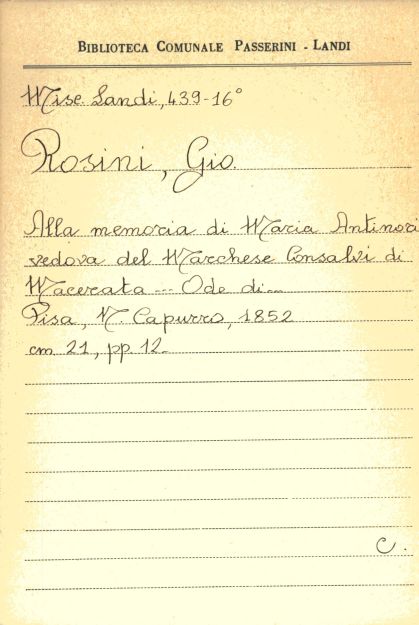 BIBLIOTECA COMUNALE PASSERINI - LANDI
Misc. Landi, 439-16°
Rosini, Gio.
Alla memoria di Maria Antinori
vedova del Marchese Consalvi di
Macerata --- Ode di...
Pisa, N. Capurro, 1852
cm 21, pp. 12.
C.